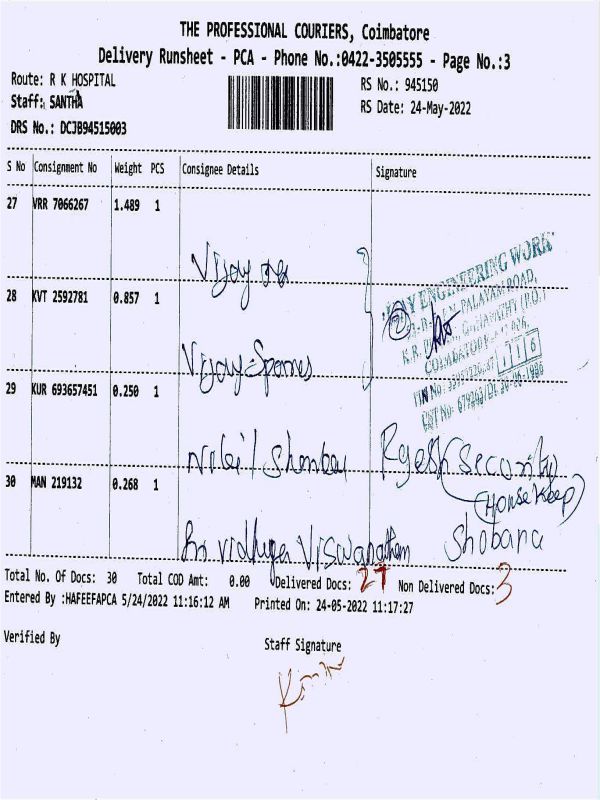 THE PROFESSIONAL COURIERS, Coimbatore
Delivery Runsheet - PCA - Phone No.:0422-3505555 - Page No.:3
Route: R K HOSPITAL
RS No.: 945150
Staff: SANTHA
RS Date: 24-May-2022
DRS No.: DCJB94515003
S No Consignment No Weight PCS Consignee Details Signature
27 VRR 7066267 1.489 1
Vijay
ENGINEERING WORK
28 KVT 2592781 0.857 1
Vijay Spares
29 KUR 693657451 0.250 1
Security
(House Keep)
30 MAN 219132 0.268 1
Viswanathan Shobana
Total No. Of Docs: 30 Total COD Amt: 0.00 Delivered Docs: 27 Non Delivered Docs: 3
Entered By :HAFEEFAPCA 5/24/2022 11:16:12 AM Printed On: 24-05-2022 11:17:27
Verified By Staff Signature